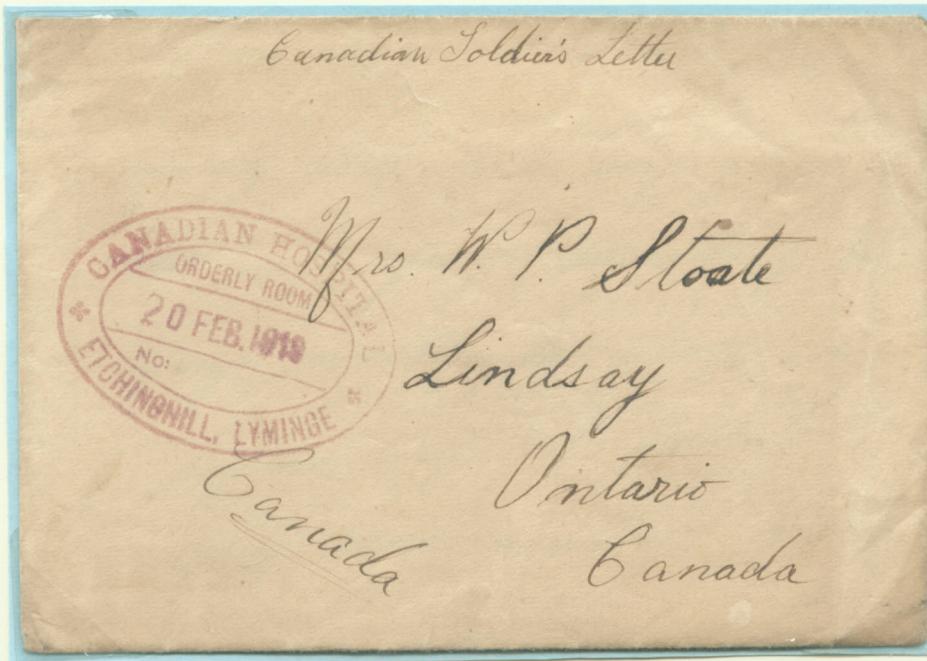 Canadian Soldier's Letter
CANADIAN HOSPITAL
ORDERLY ROOM
20 FEB. 1919
No:
ETCHINGHILL, LYMINGE
Mrs. W. P. Stoate
Lindsay
Ontario
Canada
Canada